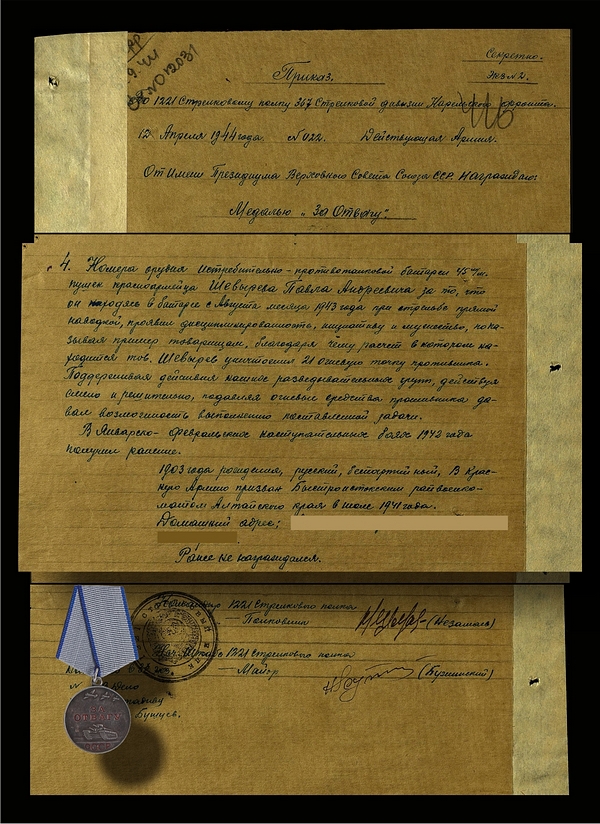 Секретно.
Экз N 2.
Приказ.
по 1221 Стрелковому полку 367 Стрелковой дивизии Карельского фронта.
12 Апреля 1944 года. N 022. Действующая Армия.
От Имени Президиума Верховного Совета Союза ССР. Награждаю:
Медалью „За Отвагу".
4. Номера орудия истребительно-противотанковой батареи 45 м/м.
пушек красноармейца Шевырева Павла Андреевича за то, что
он находясь в батарее с Августа месяца 1943 года при стрельбе прямой
наводкой, проявил дисциплинированность, инициативу и мужество, пока-
зывая пример товарищам, благодаря чему расчет в котором на-
ходится тов. Шевырев уничтожил 21 огневую точку противника.
Поддерживая действия наших разведывательных групп, действуя
смело и решительно, подавляя огневые средства противника да-
вал возможность выполнению поставленной задачи.
В Январско-февральских наступательных боях 1942 года
получил ранение.
1903 года рождения, русский, беспартийный, В Крас-
ную Армию призван Быстроистокским райвоенко-
матом Алтайского края в июле 1941 года.
Домашний адрес;
Ранее не награждался.
1221 Стрелкового полка
— Полковник (Незамов)
1221 Стрелкового полка
— Майор
Бушуев.
ЗА
ОТВАГУ
СССР